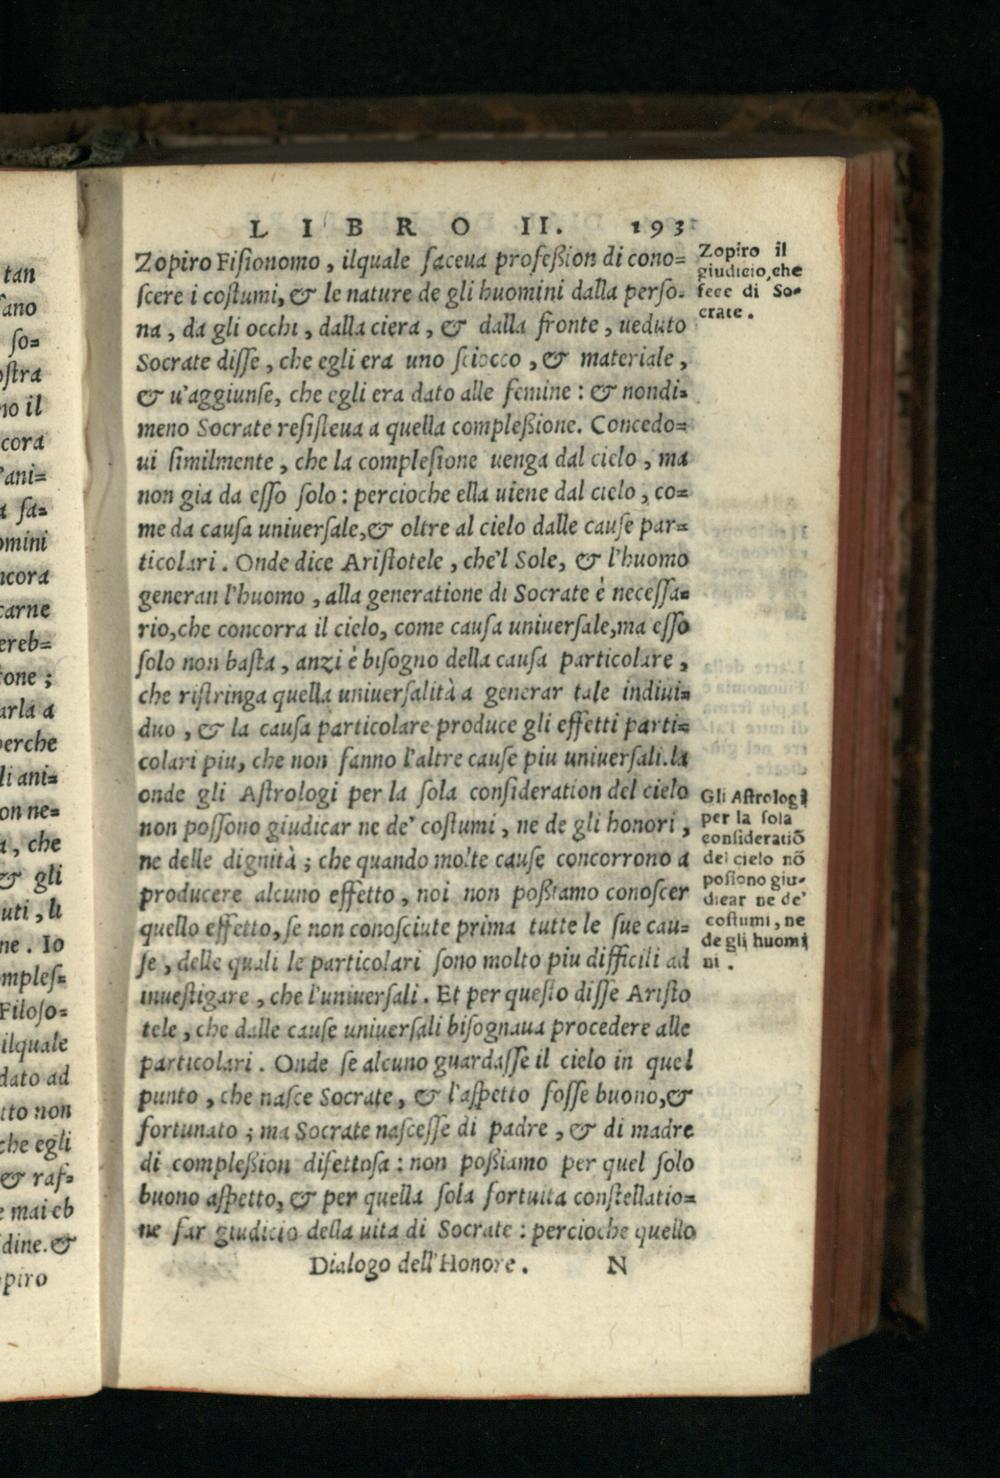 tan
sano
so=
ostra
no il
cora
'ani=
a fa=
omini
ncora
carne
ereb=
tone ;
arla a
perche
li ani=
on ne=
a, che
& gli
uti, li
ne. Io
mples=
Filoso=
ilquale
dato ad
tto non
che egli
& raf=
e mai eb
dine. &
piro
LIBRO II. 193
Zopiro Fisionomo, ilquale faceua profeßion di cono=
scere i costumi, & le nature de gli huomini dalla perso=
na, da gli occhi, dalla ciera, & dalla fronte, ueduto
Socrate disse, che egli era uno sciocco, & materiale,
& u'aggiunse, che egli era dato alle femine: & nondi=
meno Socrate resisteua a quella compleßione. Concedo=
ui similmente, che la complesione uenga dal cielo, ma
non gia da esso solo: percioche ella uiene dal cielo, co=
me da causa uniuersale, & oltre al cielo dalle cause par=
ticolari. Onde dice Aristotele, che'l Sole, & l'huomo
generan l'huomo, alla generatione di Socrate è necessa=
rio, che concorra il cielo, come causa uniuersale, ma esso
solo non basta, anzi è bisogno della causa particolare,
che ristringa quella uniuersalità a generar tale indiui=
duo, & la causa particolare produce gli effetti parti=
colari piu, che non fanno l'altre cause piu uniuersali. la
onde gli Astrologi per la sola consideration del cielo
non possono giudicar ne de' costumi, ne de gli honori,
ne delle dignità; che quando molte cause concorrono a
producere alcuno effetto, noi non poßiamo conoscer
quello effetto, se non conosciute prima tutte le sue cau=
se, delle quali le particolari sono molto piu difficili ad
inuestigare, che l'uniuersali. Et per questo disse Aristo
tele, che dalle cause uniuersali bisognaua procedere alle
particolari. Onde se alcuno guardasse il cielo in quel
punto, che nasce Socrate, & l'aspetto fosse buono, &
fortunato; ma Socrate nascesse di padre, & di madre
di compleßion difettosa: non poßiamo per quel solo
buono aspetto, & per quella sola fortuita constellatio=
ne far giudicio della uita di Socrate: percioche quello
Dialogo dell'Honore. N
Zopiro il
giudicio, che
fece di So=
crate.
Gli Astrologi
per la sola
consideratiõ
del cielo nõ
possono giu-
dicar ne de'
costumi, ne
de gli huomi
ni.